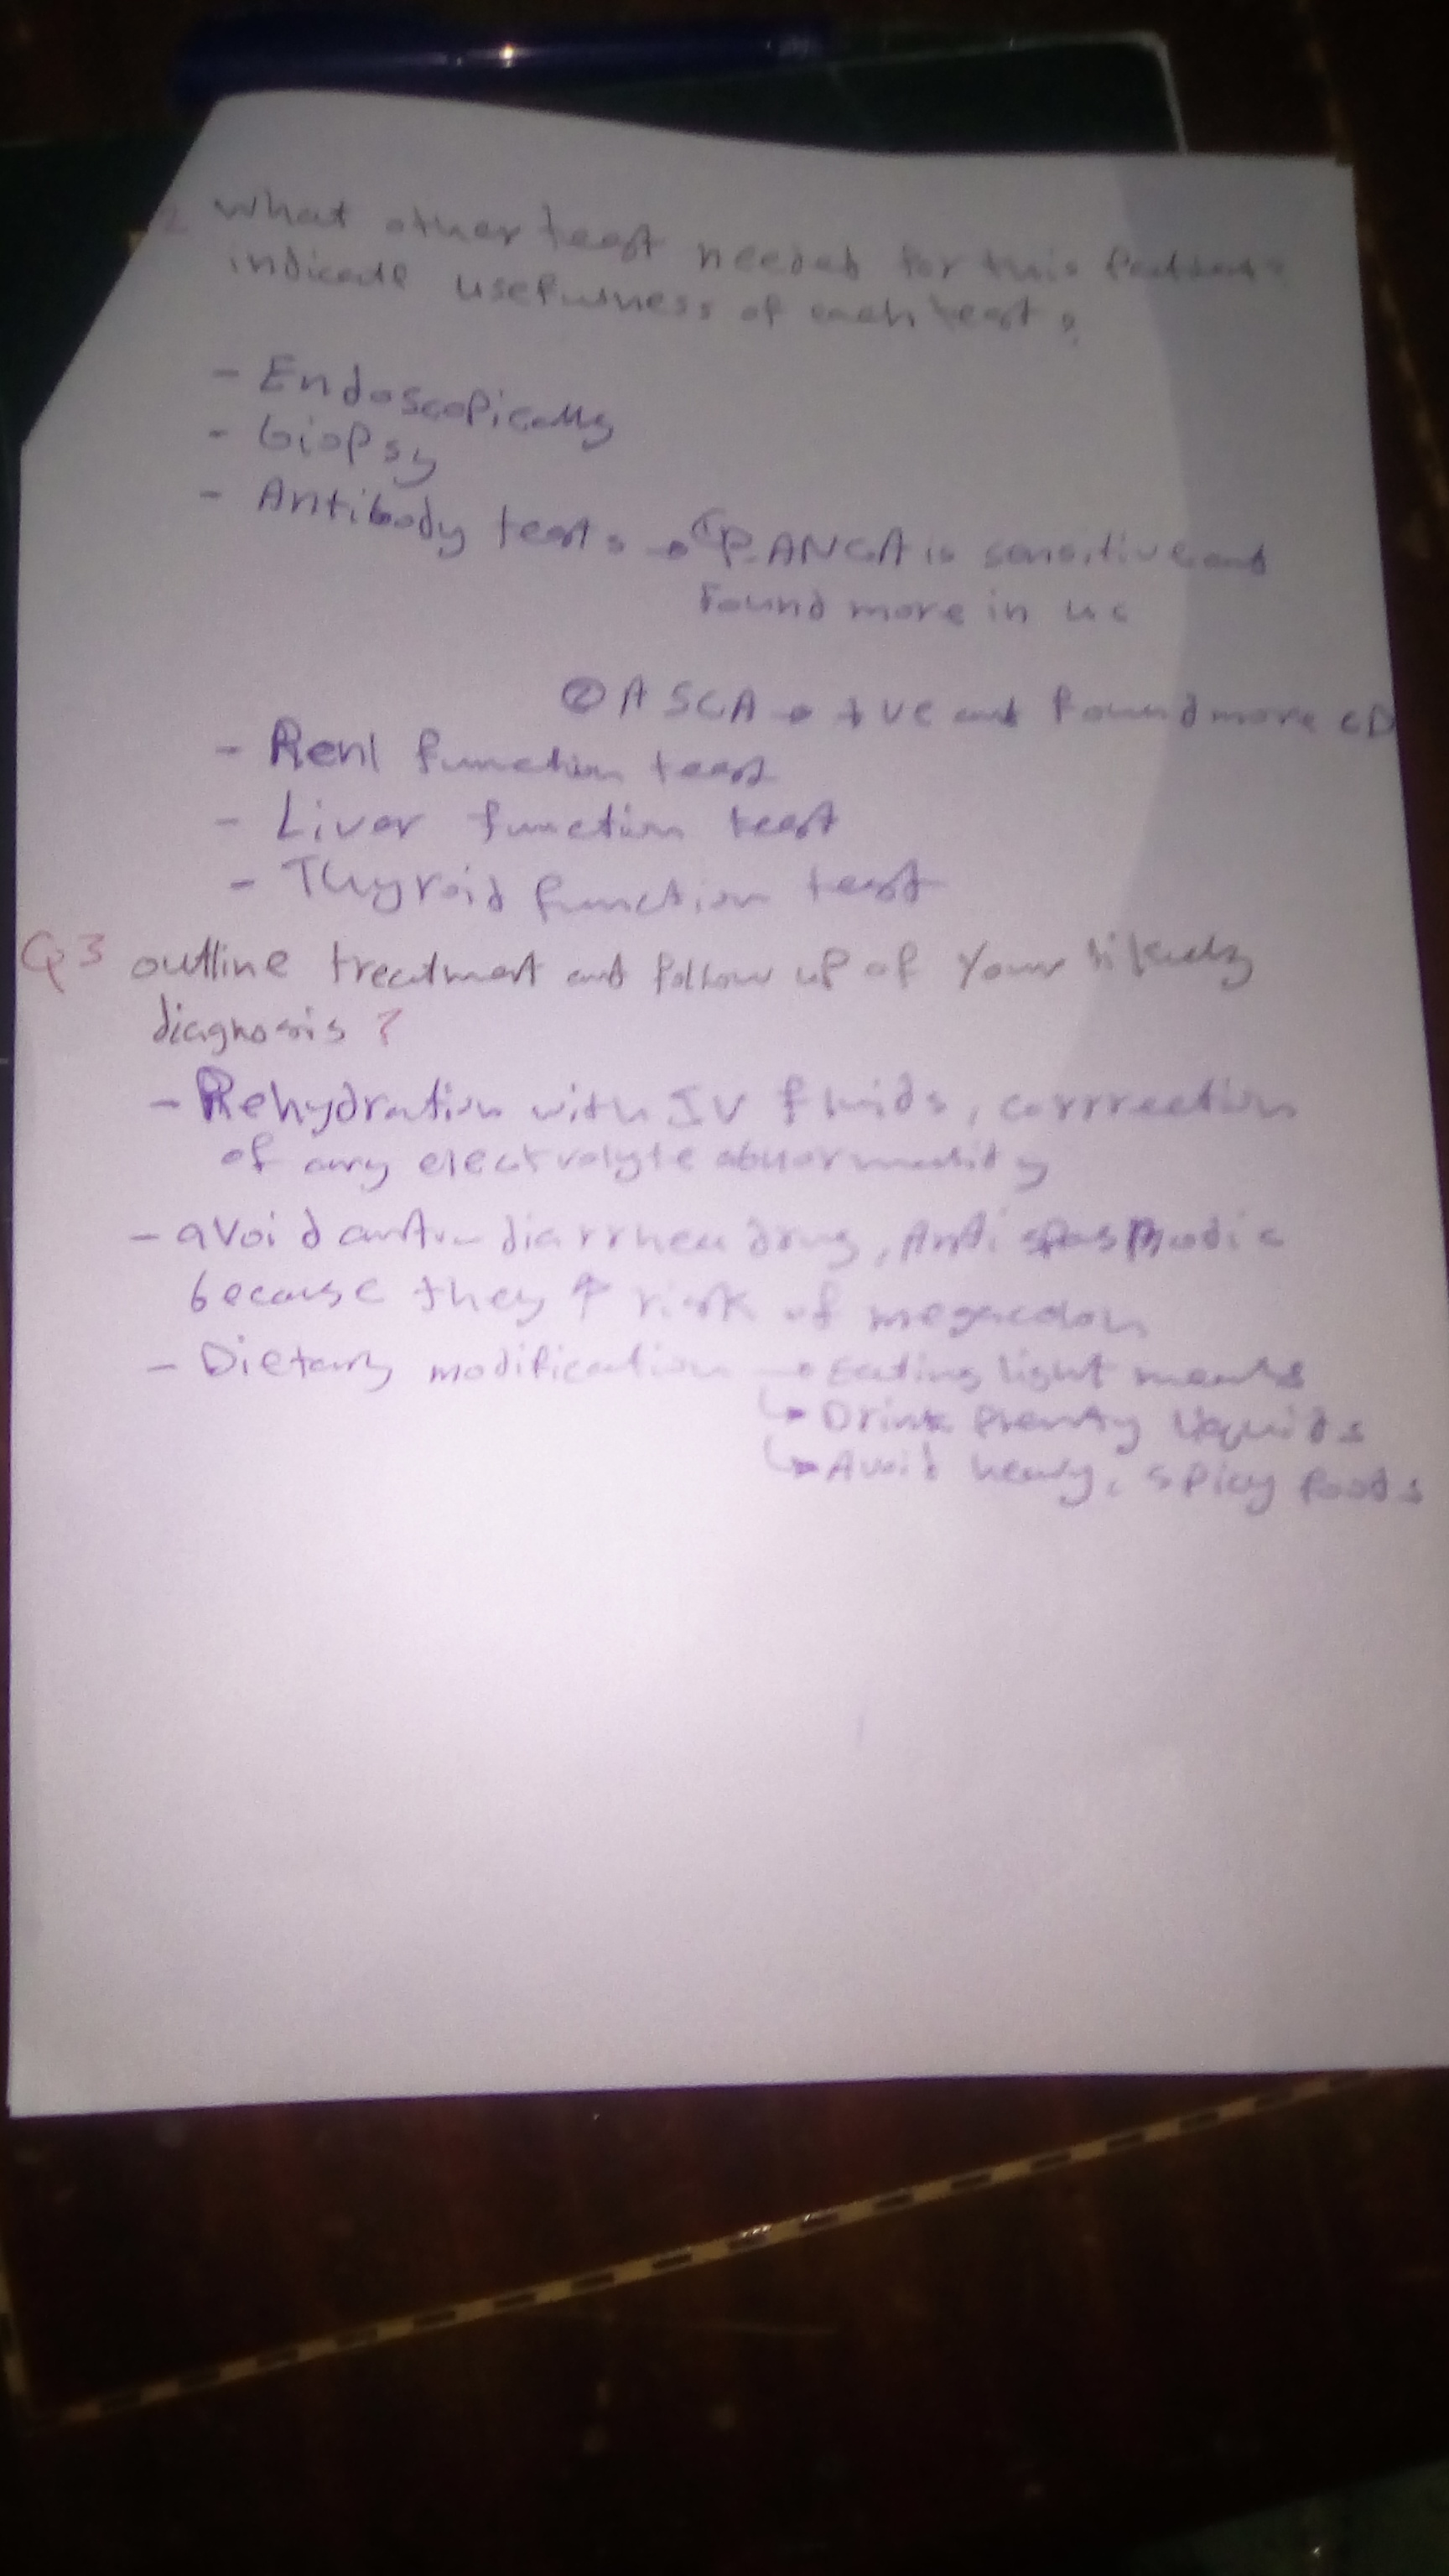 2 What other teast needed for this Patient?
indicate usefulness of each teast?
- Endoscopically
- biopsy
- Antibody teasts → ① P-ANCA is sensitive and
Found more in uc
② ASCA → +ve and found more CD
- Renl function teast
- Liver function teast
- Thyroid function teast
Q3 outline treatment and follow up of Your likely
diagnosis ?
- Rehydration with IV fluids, corrrection
of any electrolyte abnormality
- avoid anti-diarrhea drug, Anti spasmodic
because they ↑ risk of megacolon
- Dietary modification → Eating light meals
↳ Drink Plenty liquids
↳ Avoid heavy, spicy foods